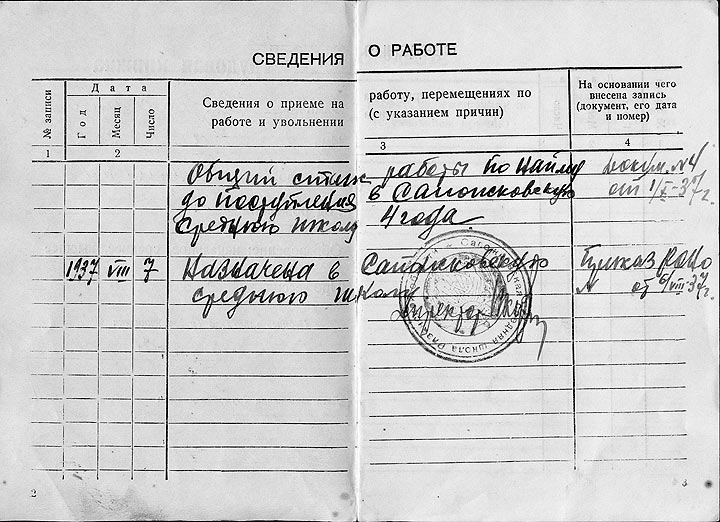 СВЕДЕНИЯ О РАБОТЕ
№ записи
Дата
Год
Месяц
Число
Сведения о приеме на работу, перемещениях по
работе и увольнении (с указанием причин)
На основании чего
внесена запись
(документ, его дата
и номер)
1 2 3 4
Общий стаж работы по найму
до поступления в Сапожковскую
среднюю школу 4 года
Докум. №4
от 1/II-37г.
1937 VIII 7 Назначена в Сапожковскую
среднюю школу
Директор
Приказ РОНО
№ от 6/VIII-37г.
школа
2 3